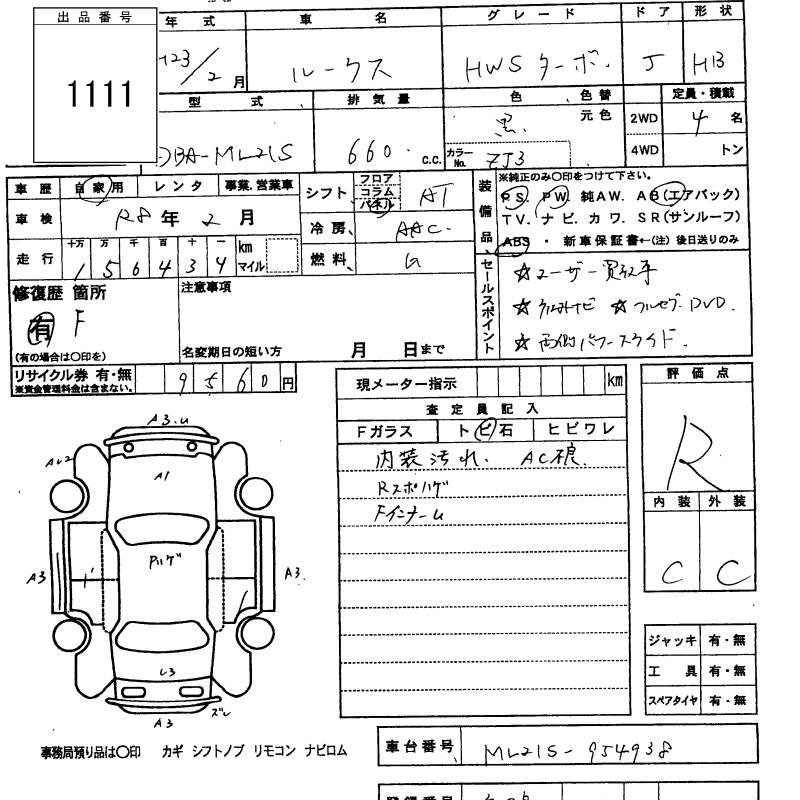 出品番号
1111
年 式
H23/2月
車 名
ルークス
グレード
HWSターボ
ドア
5
形状
HB
型 式
DBA-ML21S
排気量
660 c.c.
色 、色替
黒 元色
カラーNo. ZJ3
2WD
4WD
定員・積載
4 名
トン
車歴 自家用 レンタ 事業、営業車
車検 R8年 2月
走行 十万 万 千 百 十 一 km マイル
1 5 6 4 3 4
シフト フロア コラム パネル AT
冷房、 AAC
燃料、 G
装備品、
※純正のみ〇印をつけて下さい。
PS. PW. 純AW. AB(エアバック)
TV. ナビ. カワ. SR(サンルーフ)
ABS ・ 新車保証書←(注) 後日送りのみ
セールスポイント
☆ユーザー買取車
☆ ナビ ☆フルセグ. DVD.
☆両側パワースライド.
修復歴 箇所
有 F
(有の場合は〇印を)
注意事項
名変期日の短い方 月 日まで
リサイクル券 有・無
※資金管理料金は含まない。
9560円
現メーター指示 km
査定員記入
Fガラス トビ石 ヒビワレ
内装汚れ. AC狼
Rスポハゲ
Fインナーム
評価点
R
内装 外装
C C
A3.U
AU2
A1
A3
Pハゲ
A3
U3
A3
ズレ
ジャッキ 有・無
工具 有・無
スペアタイヤ 有・無
事務局預り品は〇印 カギ シフトノブ リモコン ナビロム
車台番号 ML21S-954938